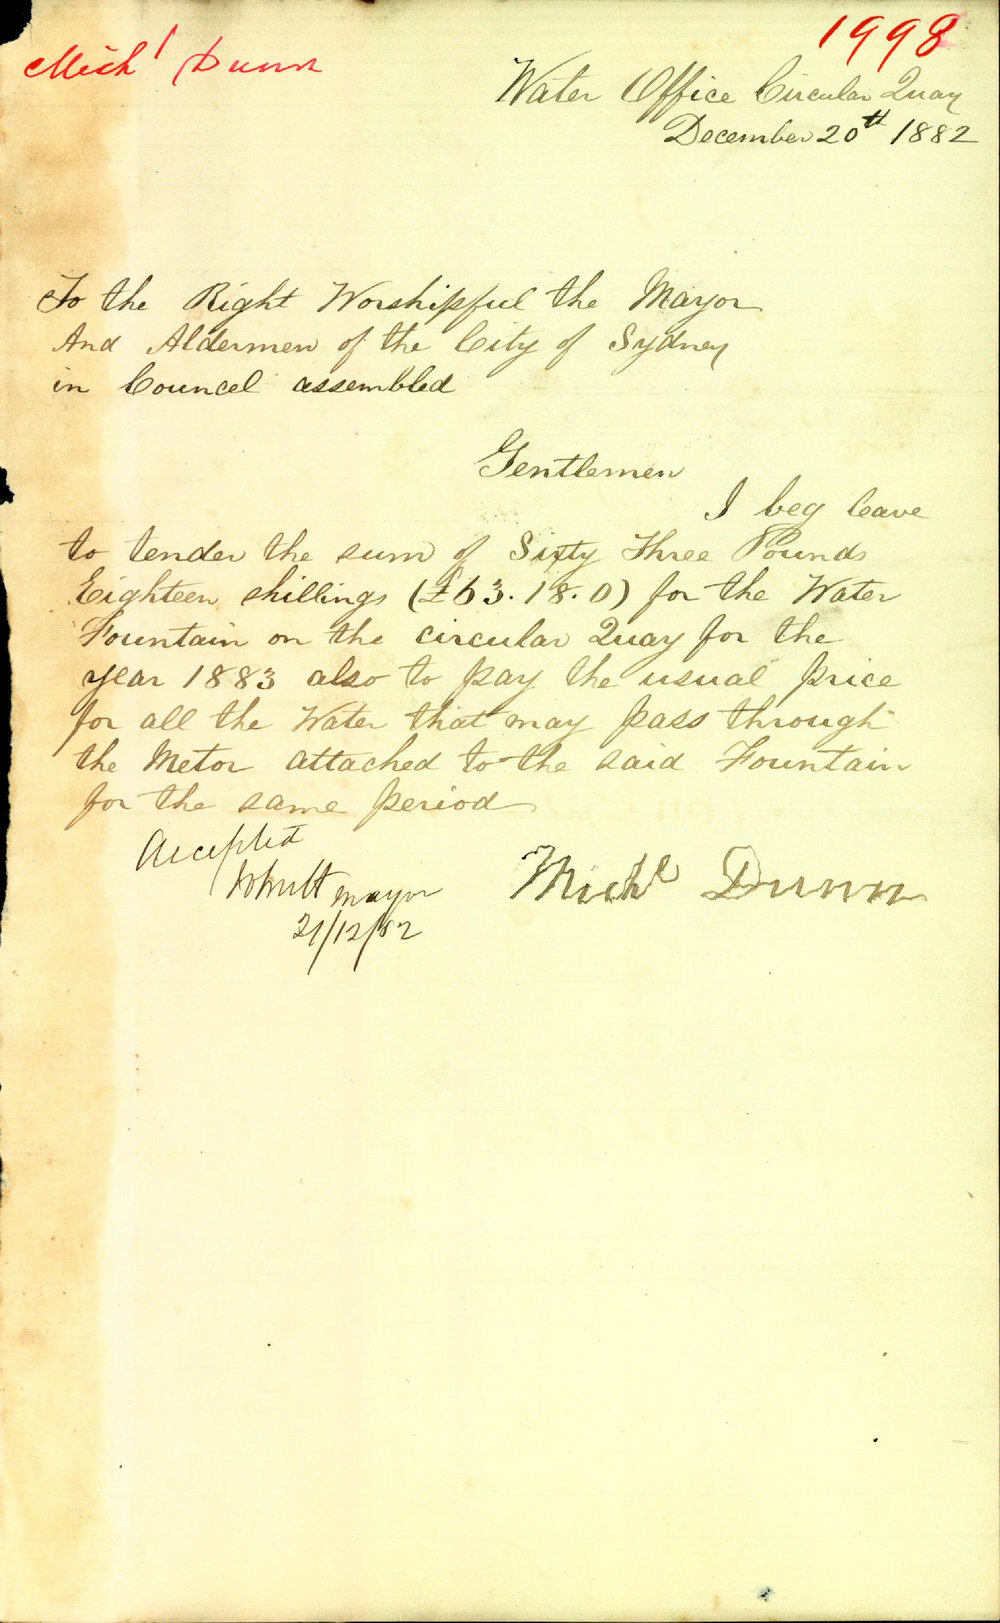 Mich'l Dunn
1998
Water Office Circular Quay
December 20th 1882
To the Right Worshipful the Mayor
And Aldermen of the City of Sydney
in Councel assembled
Gentlemen
I beg leave
to tender the sum of Sixty Three Pounds
Eighteen shillings (£63.18.0) for the Water
Fountain on the circular Quay for the
year 1883 also to pay the usual price
for all the Water that may pass through
the Metor attached to the said Fountain
for the same period
Accepted
Mayor
21/12/82
Michl Dunn